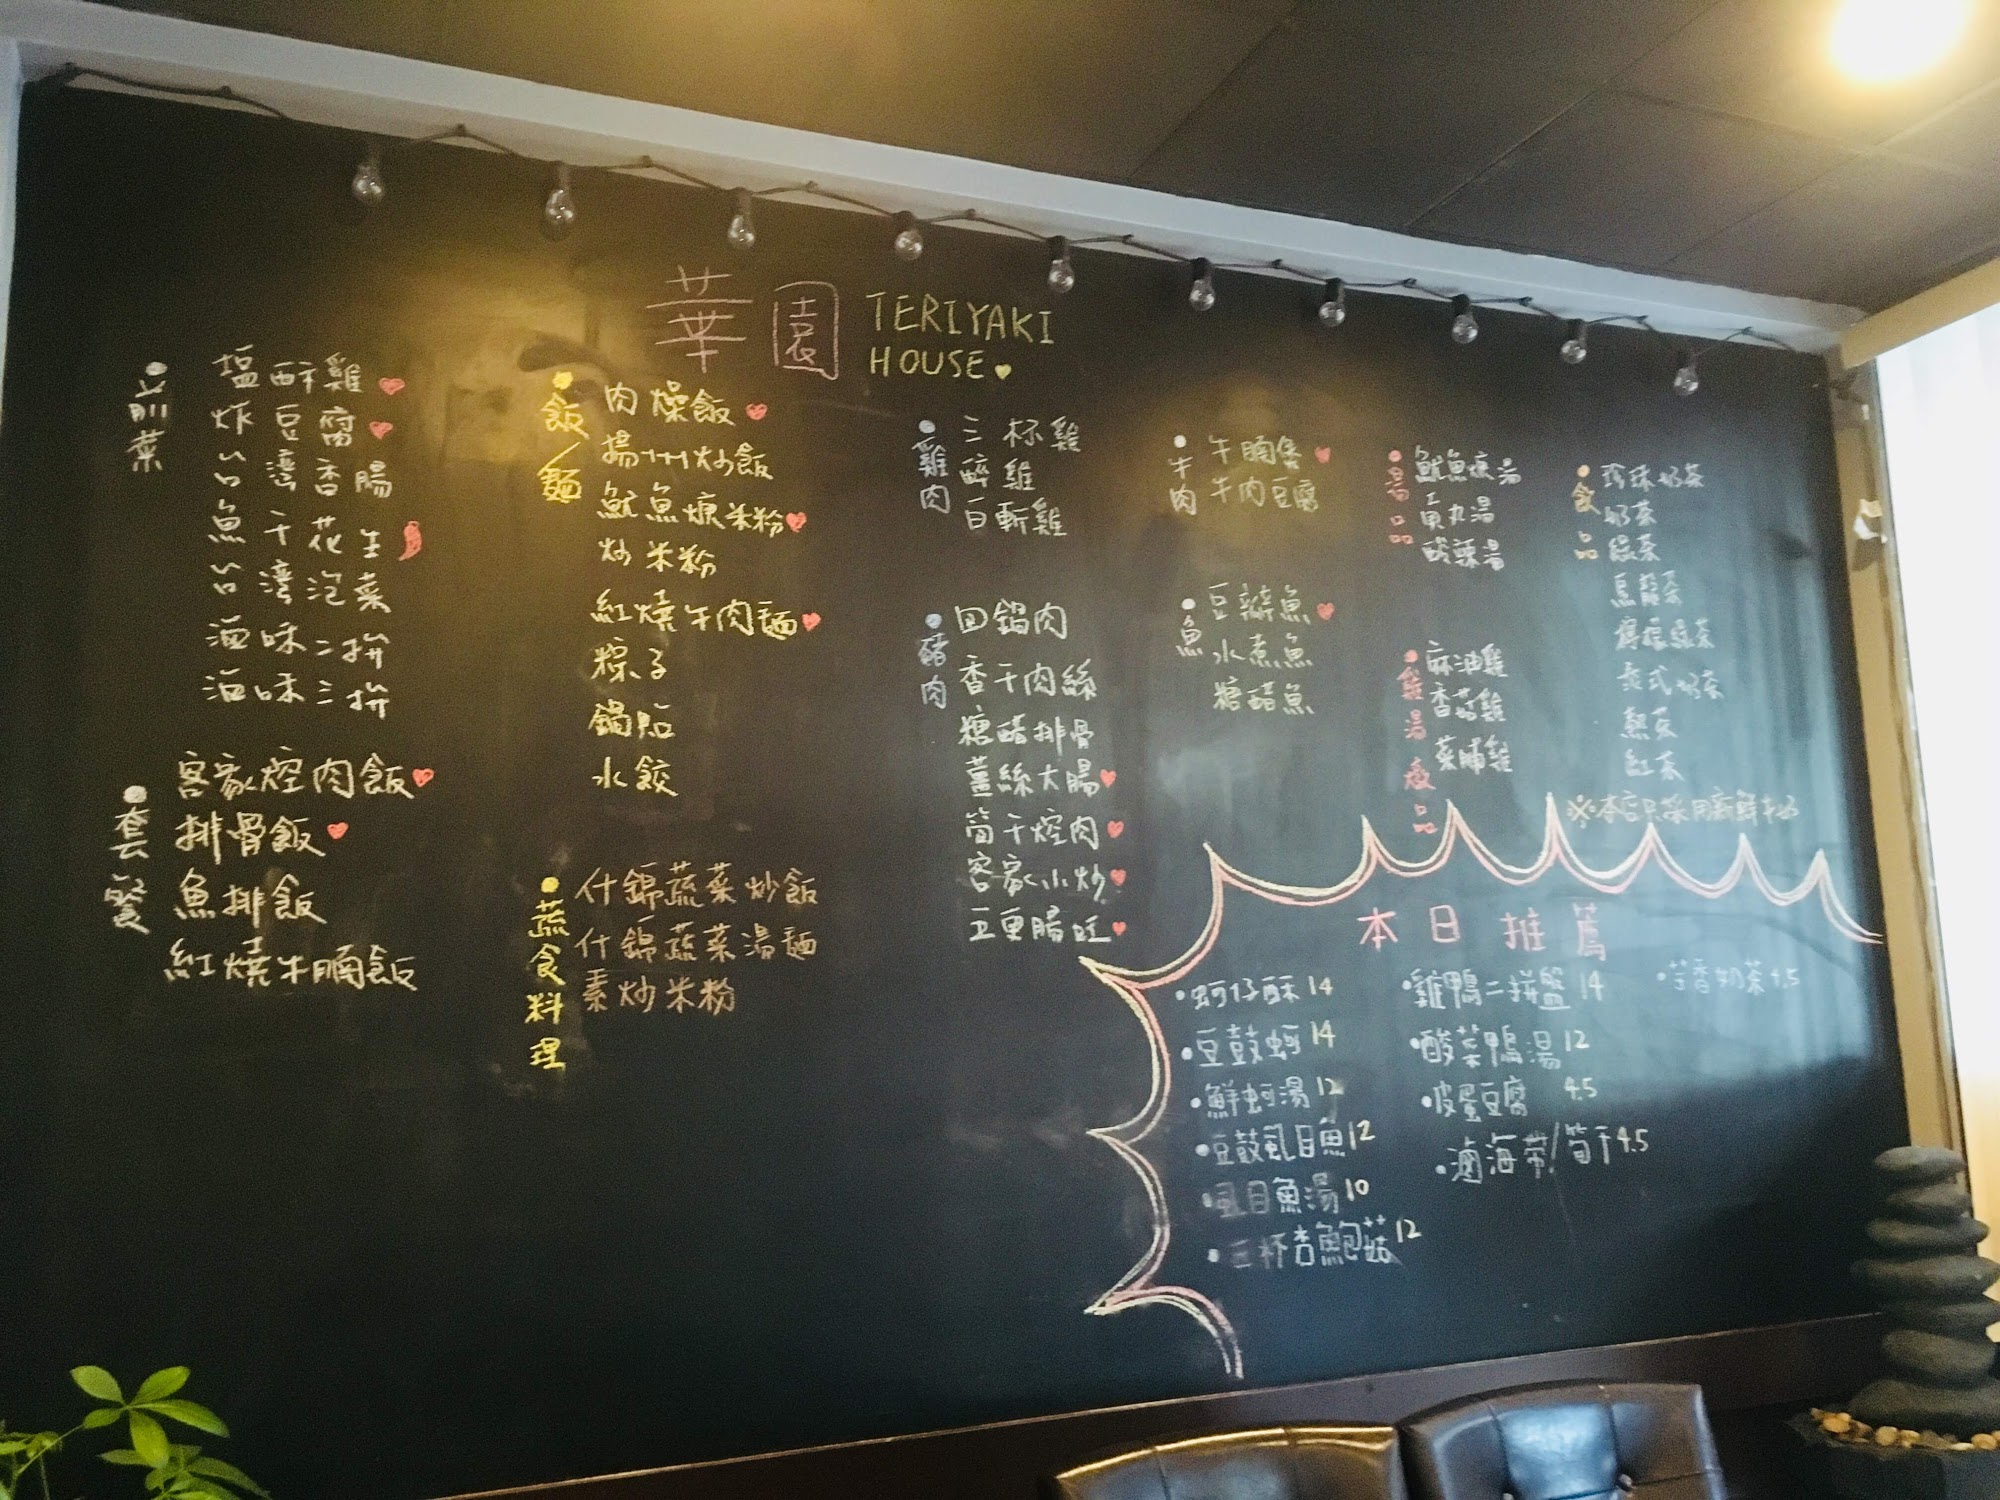 華園 TERIYAKI
HOUSE
前菜
塩酥雞
炸豆腐
台灣香腸
魚干花生
台灣泡菜
滷味二拚
滷味三拚
套餐
客家焢肉飯
排骨飯
魚排飯
紅燒牛腩飯
飯/麵
肉燥飯
揚州炒飯
魷魚焿米粉
炒米粉
紅燒牛肉麵
粽子
鍋貼
水餃
蔬食料理
什錦蔬菜炒飯
什錦蔬菜湯麵
素炒米粉
雞肉
三杯雞
醉雞
白斬雞
豬肉
回鍋肉
香干肉絲
糖醋排骨
薑絲大腸
筍干焢肉
客家小炒
豆更腸旺
牛肉
牛腩煲
牛肉豆腐
魚
豆瓣魚
水煮魚
糖醋魚
湯品
魷魚焿湯
魚丸湯
酸辣湯
雞湯
品
麻油雞
香菇雞
菜脯雞
飲品
珍珠奶茶
奶茶
綠茶
烏龍茶
檸檬綠茶
式奶茶
熱茶
紅茶
※本店只採用新鮮牛奶
本日推薦
•蚵仔酥 14
•豆鼓蚵 14
•鮮蚵湯 12
•豆鼓虱目魚 12
•虱目魚湯 10
•三杯杏鮑菇 12
•雞鴨二拼盤 14
•酸菜鴨湯 12
•皮蛋豆腐 4.5
•滷海带/筍干 4.5
•芋香奶茶 4.5